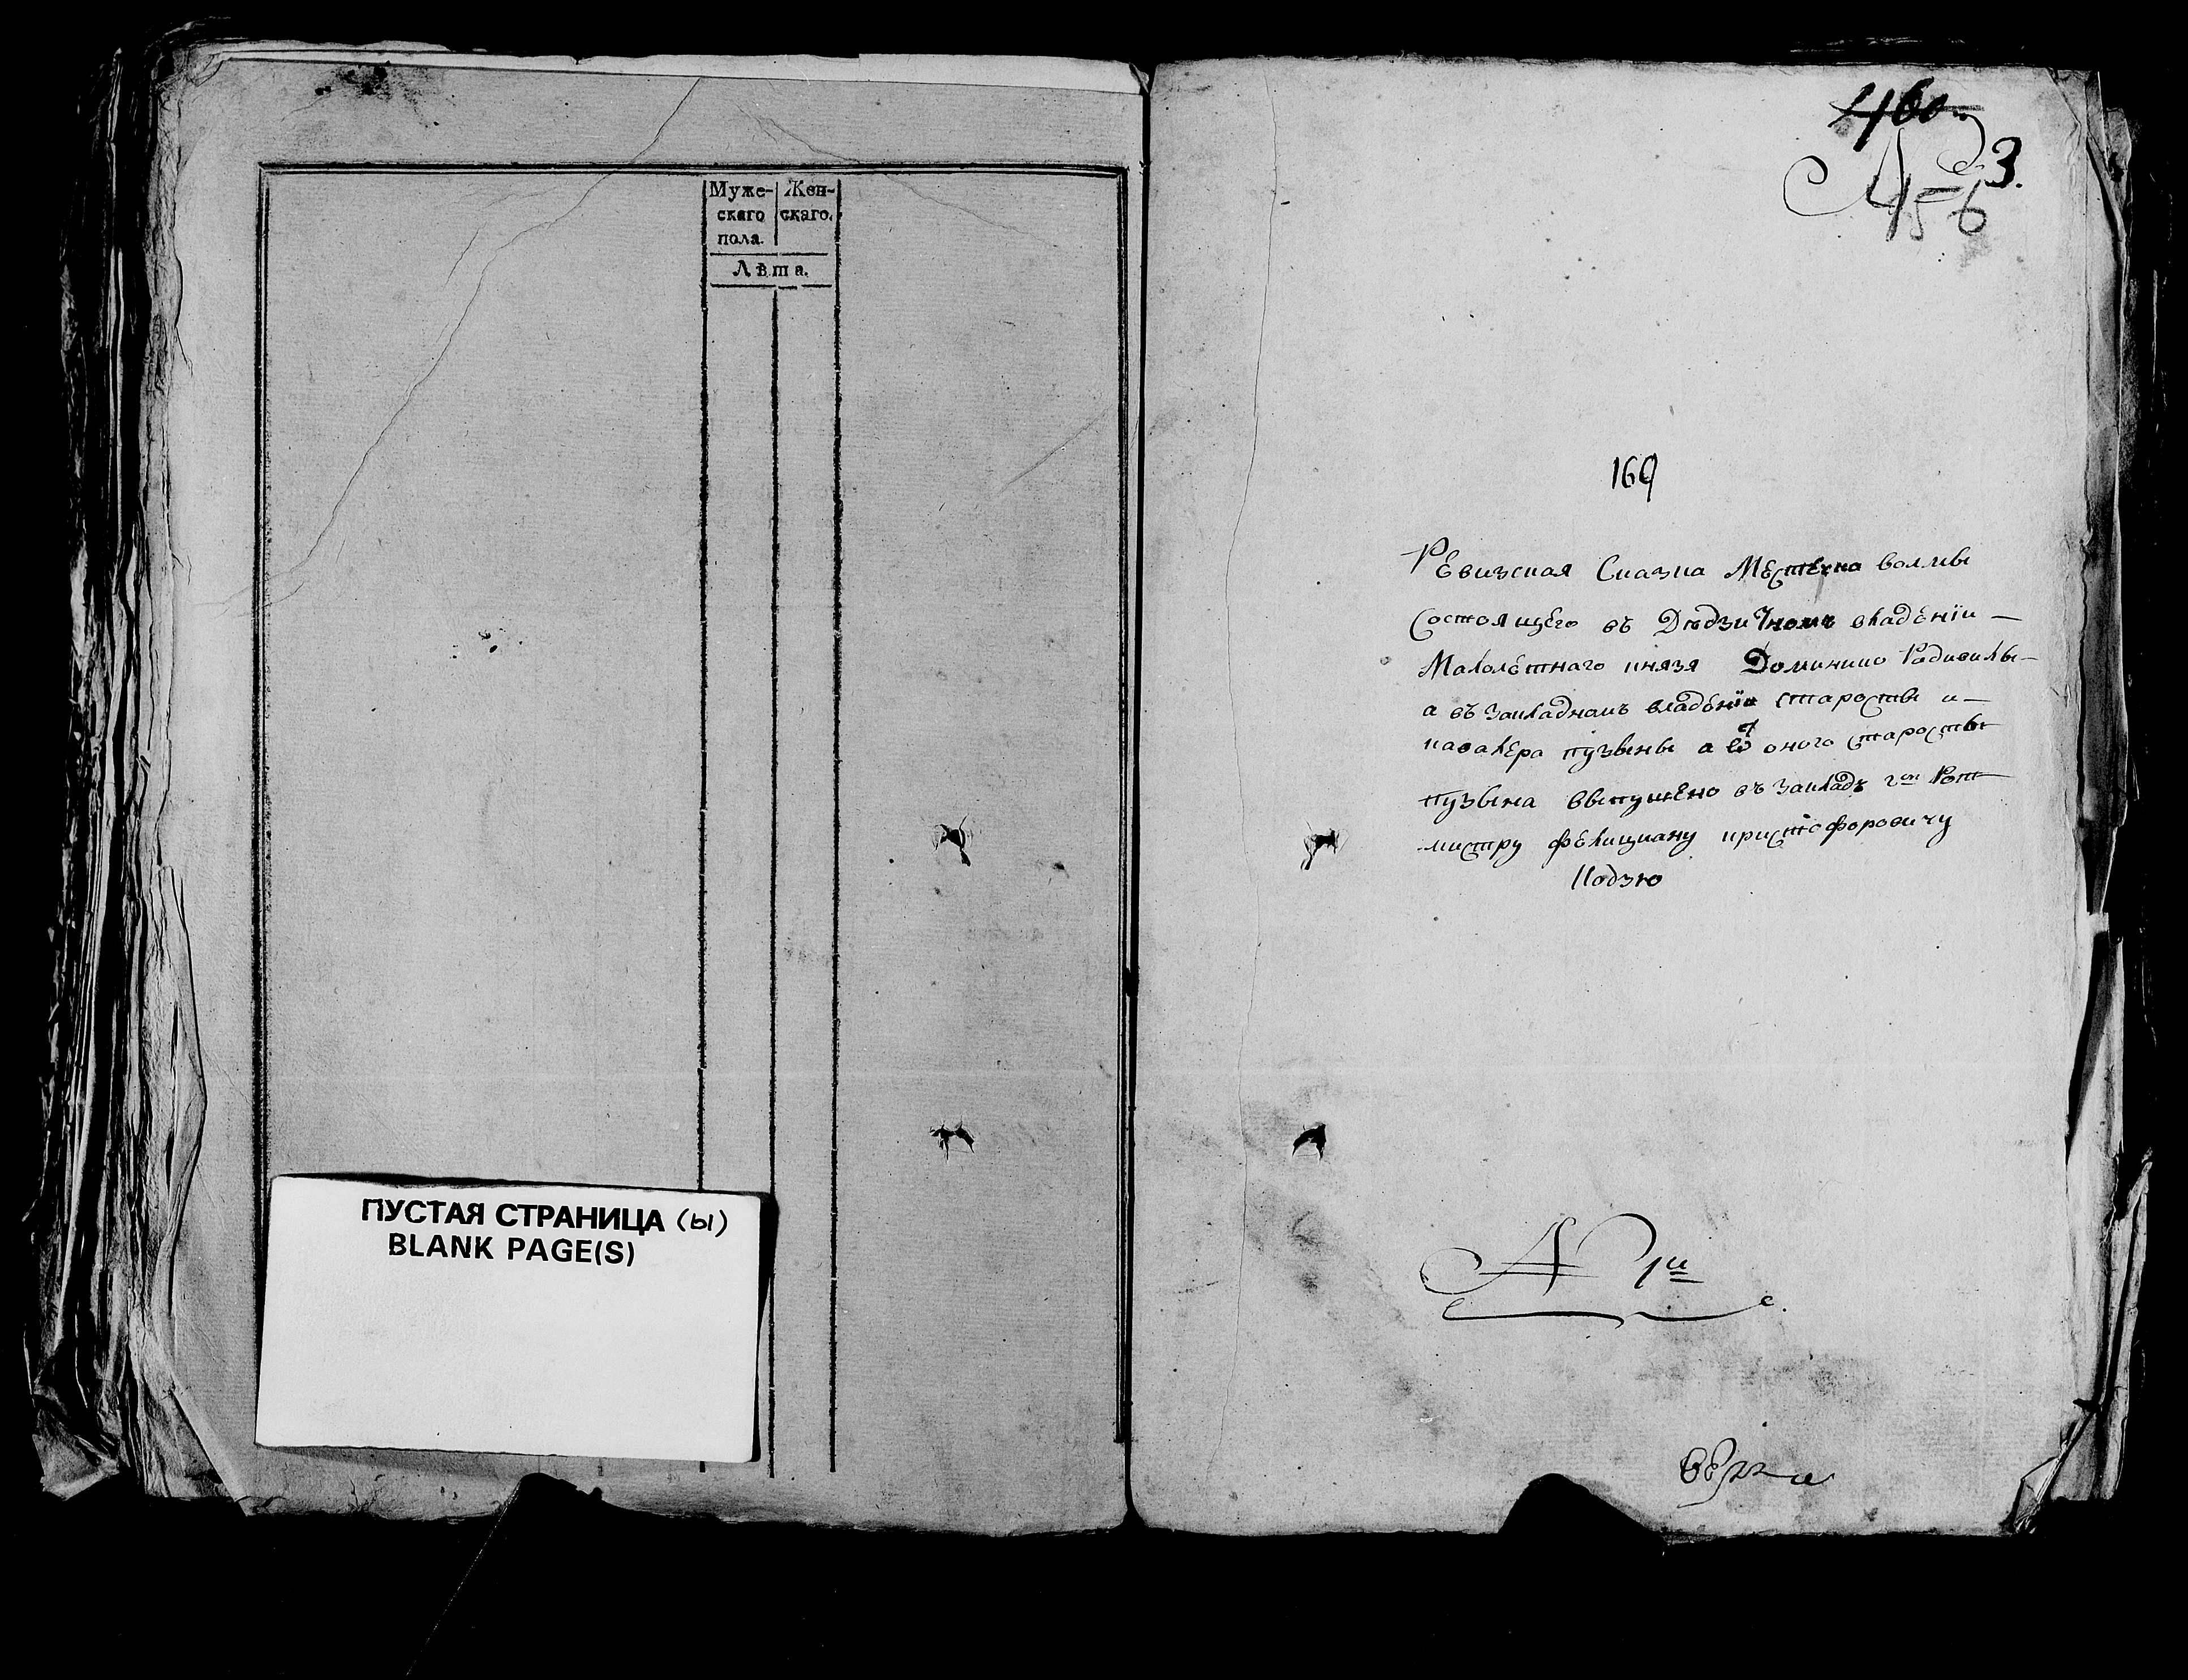 Муже-
скаго
пола.
Жен-
скаго.
Лѣта.
ПУСТАЯ СТРАНИЦА (ы)
BLANK PAGE(S)
460
3.
456
169
Ревизская Сказка Местечка волмы
Состоящего въ Дѣдзичномъ владѣніи —
Малолѣтнаго князя Доминика Радивилы —
а въ Закладномъ владѣніи старосты и —
кавалера пузыны а отъ оного старосты
пузына выпущено въ закладъ гон Рот
мистру фелициану кристофоровичу
Иодзю